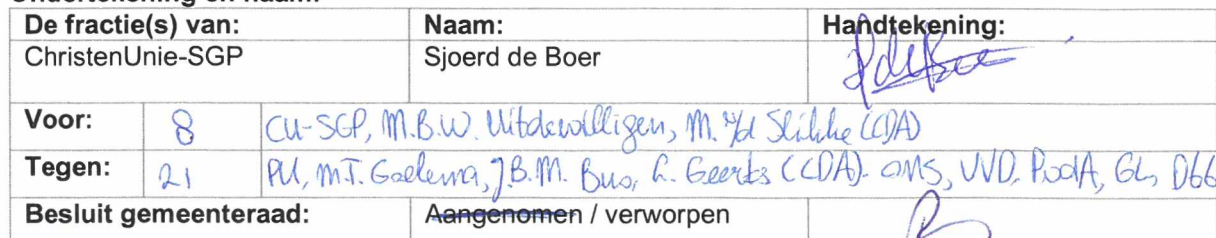 De fractie(s) van: Naam: Handtekening:
ChristenUnie-SGP Sjoerd de Boer
Voor: 8 CU-SGP, M.B.W. Uitdewilligen, M. v/d Slikke (CDA)
Tegen: 21 M.T. Goelema, J.B.M. Bus, Geerts (CDA). OMS, VVD, PvdA, GL, D66
Besluit gemeenteraad: Aangenomen / verworpen